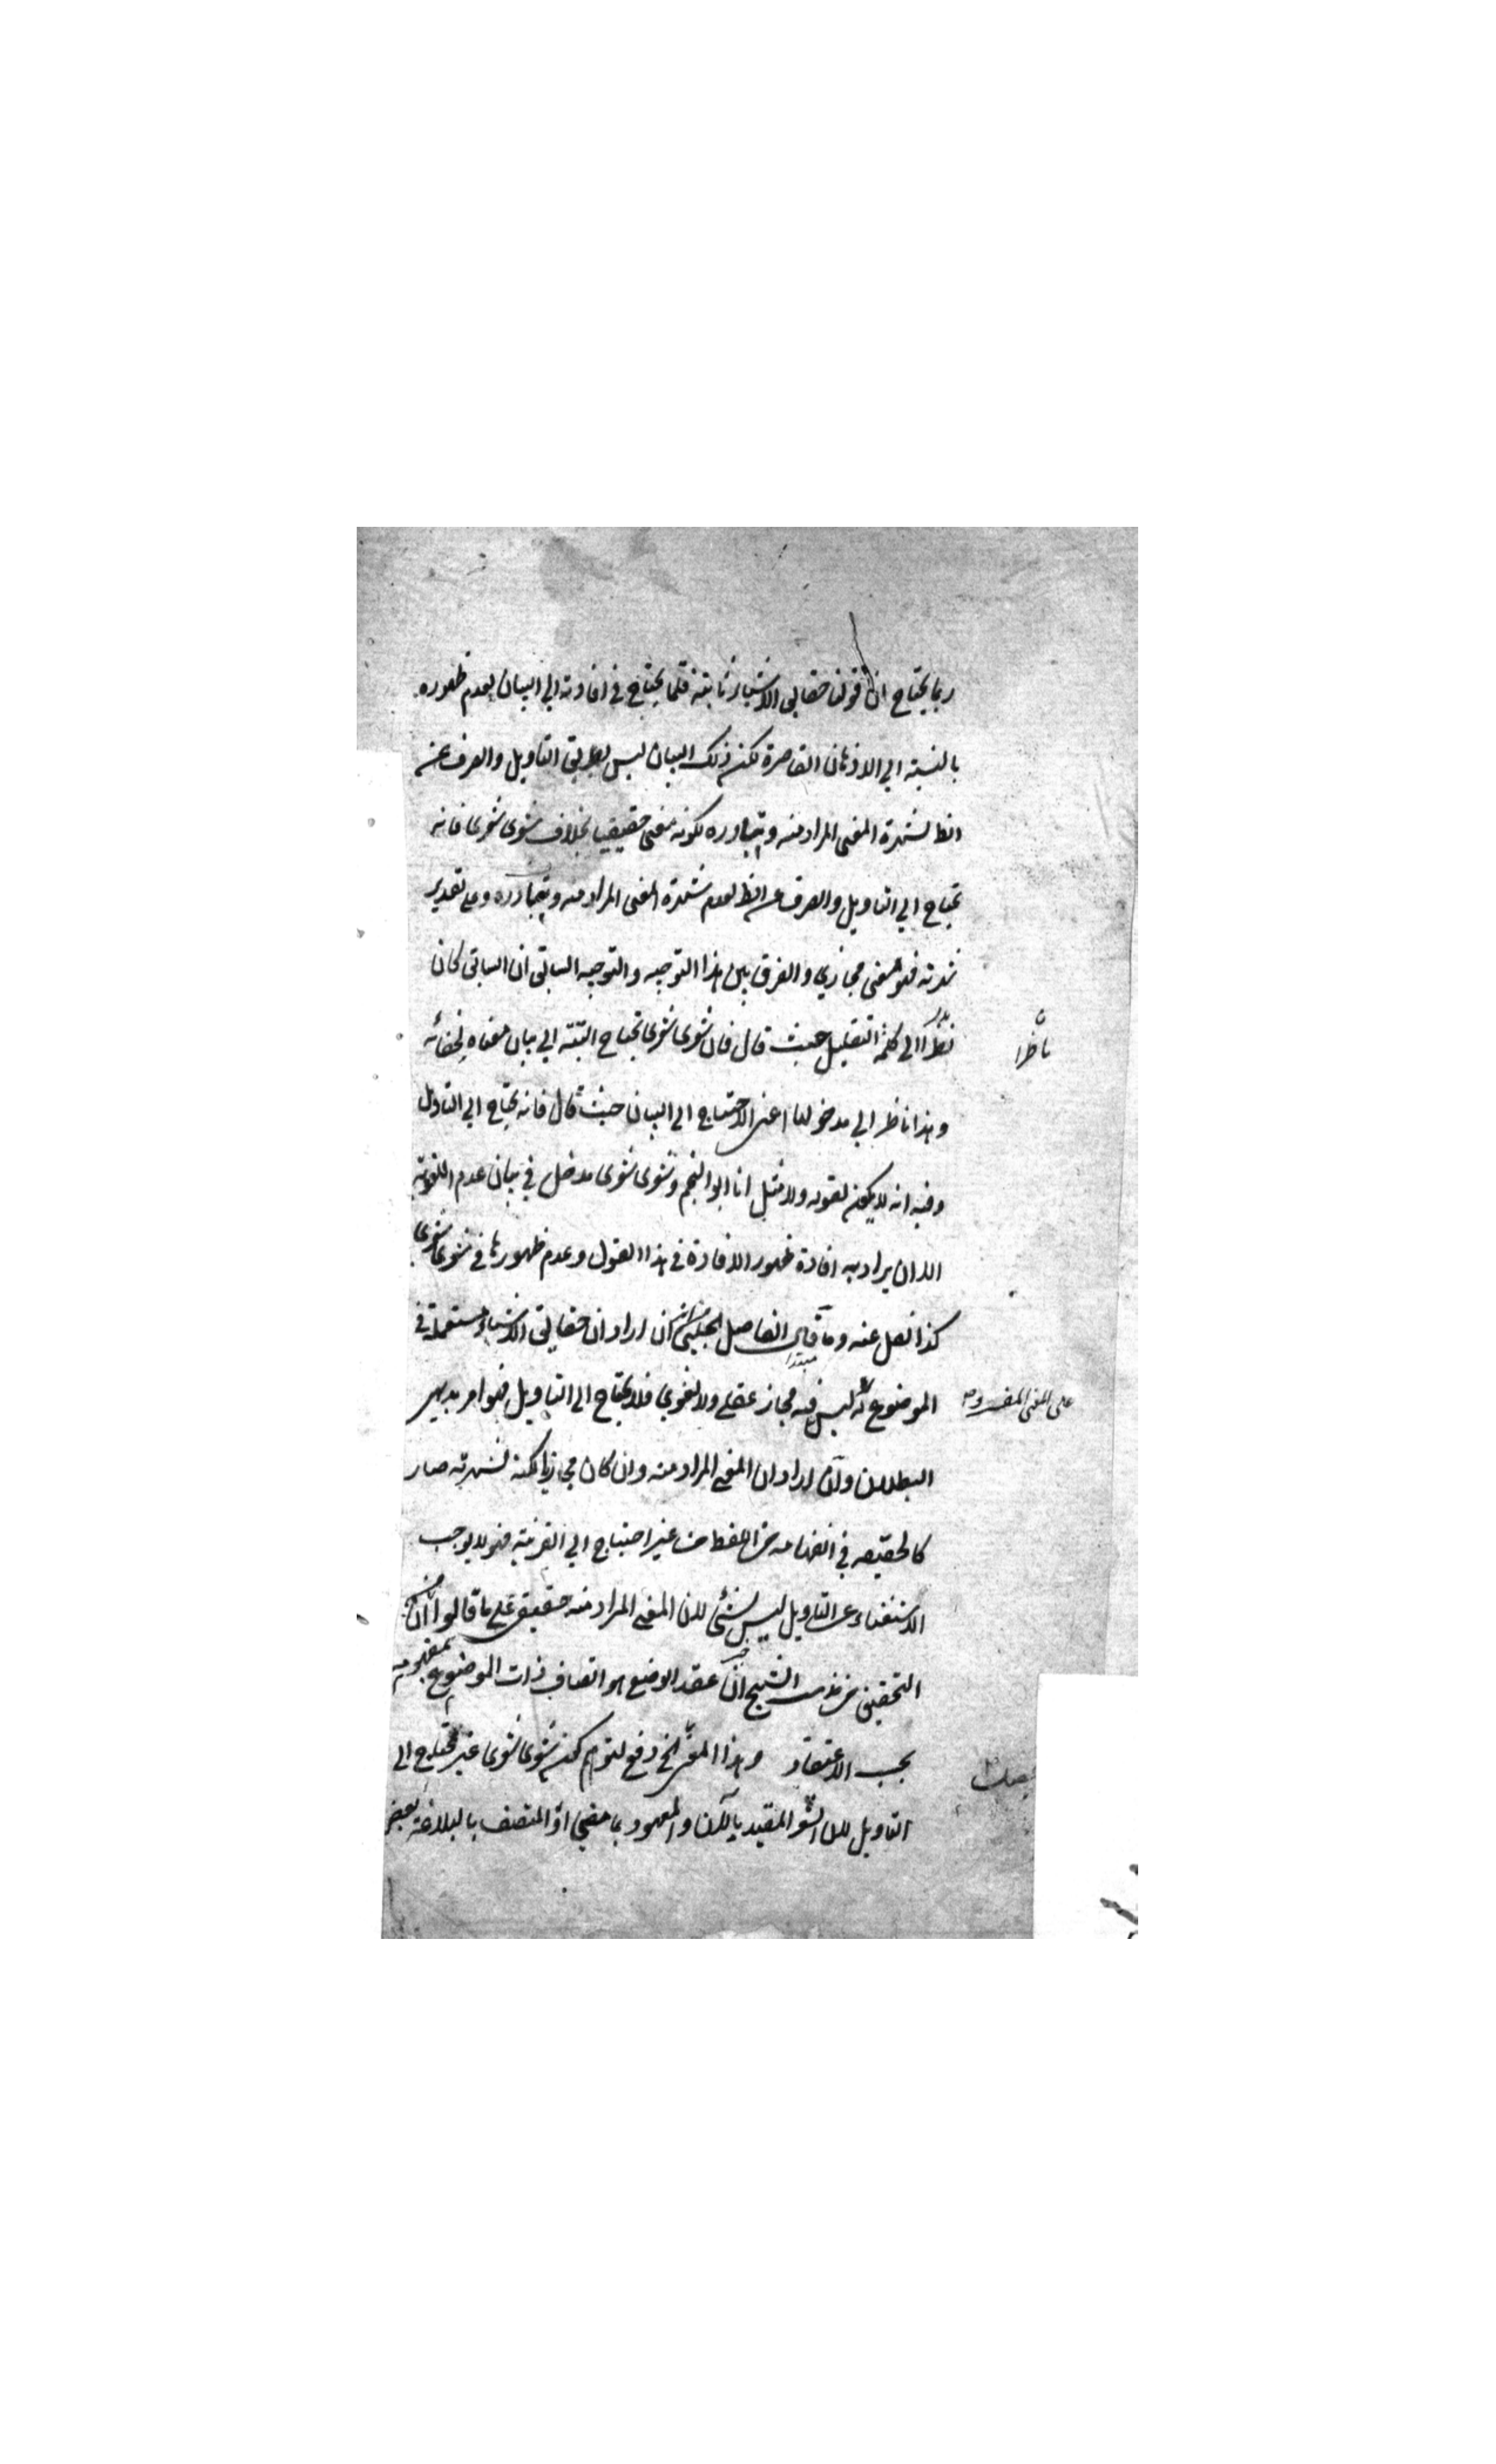 ربما يحتاج ان قولنا حقايق الاشياء ثابتة قلما يحتاج في افادته الي البيان لعدم ظهوره
بالنسبة الي الاذهان القاصرة لكن ذلك البيان ليس بطريق التاويل والصرف عن
الظ لشهرة المعنى المراد منه وتبادره لكونه معنى حقيقيا بخلاف شعرى شعرى فانه
يحتاج الي التاويل والصرف عن الظ لعدم شهرة المعنى المراد منه وتبادره وعلى تقدير
شهرته فهو معنى مجازي والفرق بين هذا التوجيه والتوجيه السابق ان السابق كان
نظرا الى كلمة التقليل حيث قال فان شعرى شعرى يحتاج البتة الي بيان معناه لخفائه
ناظرا
وهذا ناظر الي مدخولها اعنى الاحتياج الى البيان حيث قال فانه يحتاج الي التاويل
وفيه انه لا يكون لقوله ولا مثل انا ابو النجم وشعرى شعرى مدخل في بيان عدم اللغوية
الا ان يراد به افادة ظهور الافادة في هذا القول وعدم ظهورها في شعرى شعرى
كذا نقل عنه وما قال الفاضل الجلبى ان اراد ان حقايق الاشياء مستعملة في
الموضوع له ليس فيه مجاز عقلي ولا لغوي فلا يحتاج الى التاويل فهو امر بديهي
على المعنى المفسر و
البطلان وان اراد ان المعنى المراد منه وان كان مجازيا لكنه لشهرته صار
كالحقيقة في انفهامه من اللفظ من غير احتياج الي القرينة فهو لا يوجب
الاستغناء عن التاويل ليس بشئ لان المعنى المراد منه حقيقى على ما قالوا ان
التحقيق من مذهب الشيخ ان عقد الوضع هو اتصاف ذات الموضوع بمفهومه
بحسب الاعتقاد وهذا المعنى الخ دفع لتوهم كون شعرى شعرى غير محتاج الى
التاويل لان الشعر المقيد بالآن والمعهود بما مضى او المتصف بالبلاغة بعض